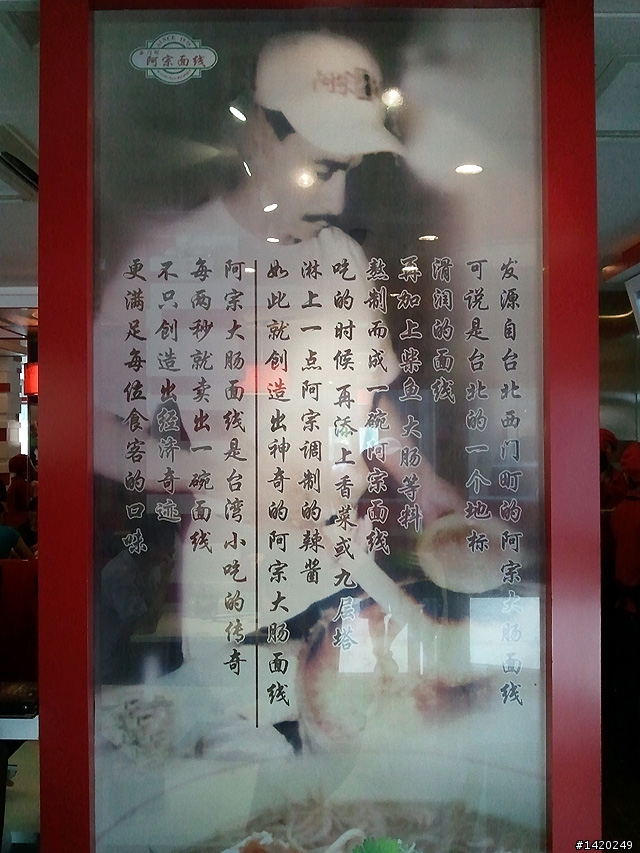 SINCE
阿宗面线
阿宗
发源自台北西门町的阿宗大肠面线
可说是台北的一个地标
滑润的面线
再加上柴鱼大肠等料
熬制而成一碗阿宗面线
吃的时候 再添上香菜或九层塔
淋上一点阿宗调制的辣酱
如此就创造出神奇的阿宗大肠面线
阿宗大肠面线是台湾小吃的传奇
每两秒就卖出一碗面线
不只创造出经济奇迹
更满足每位食客的口味
#1420249